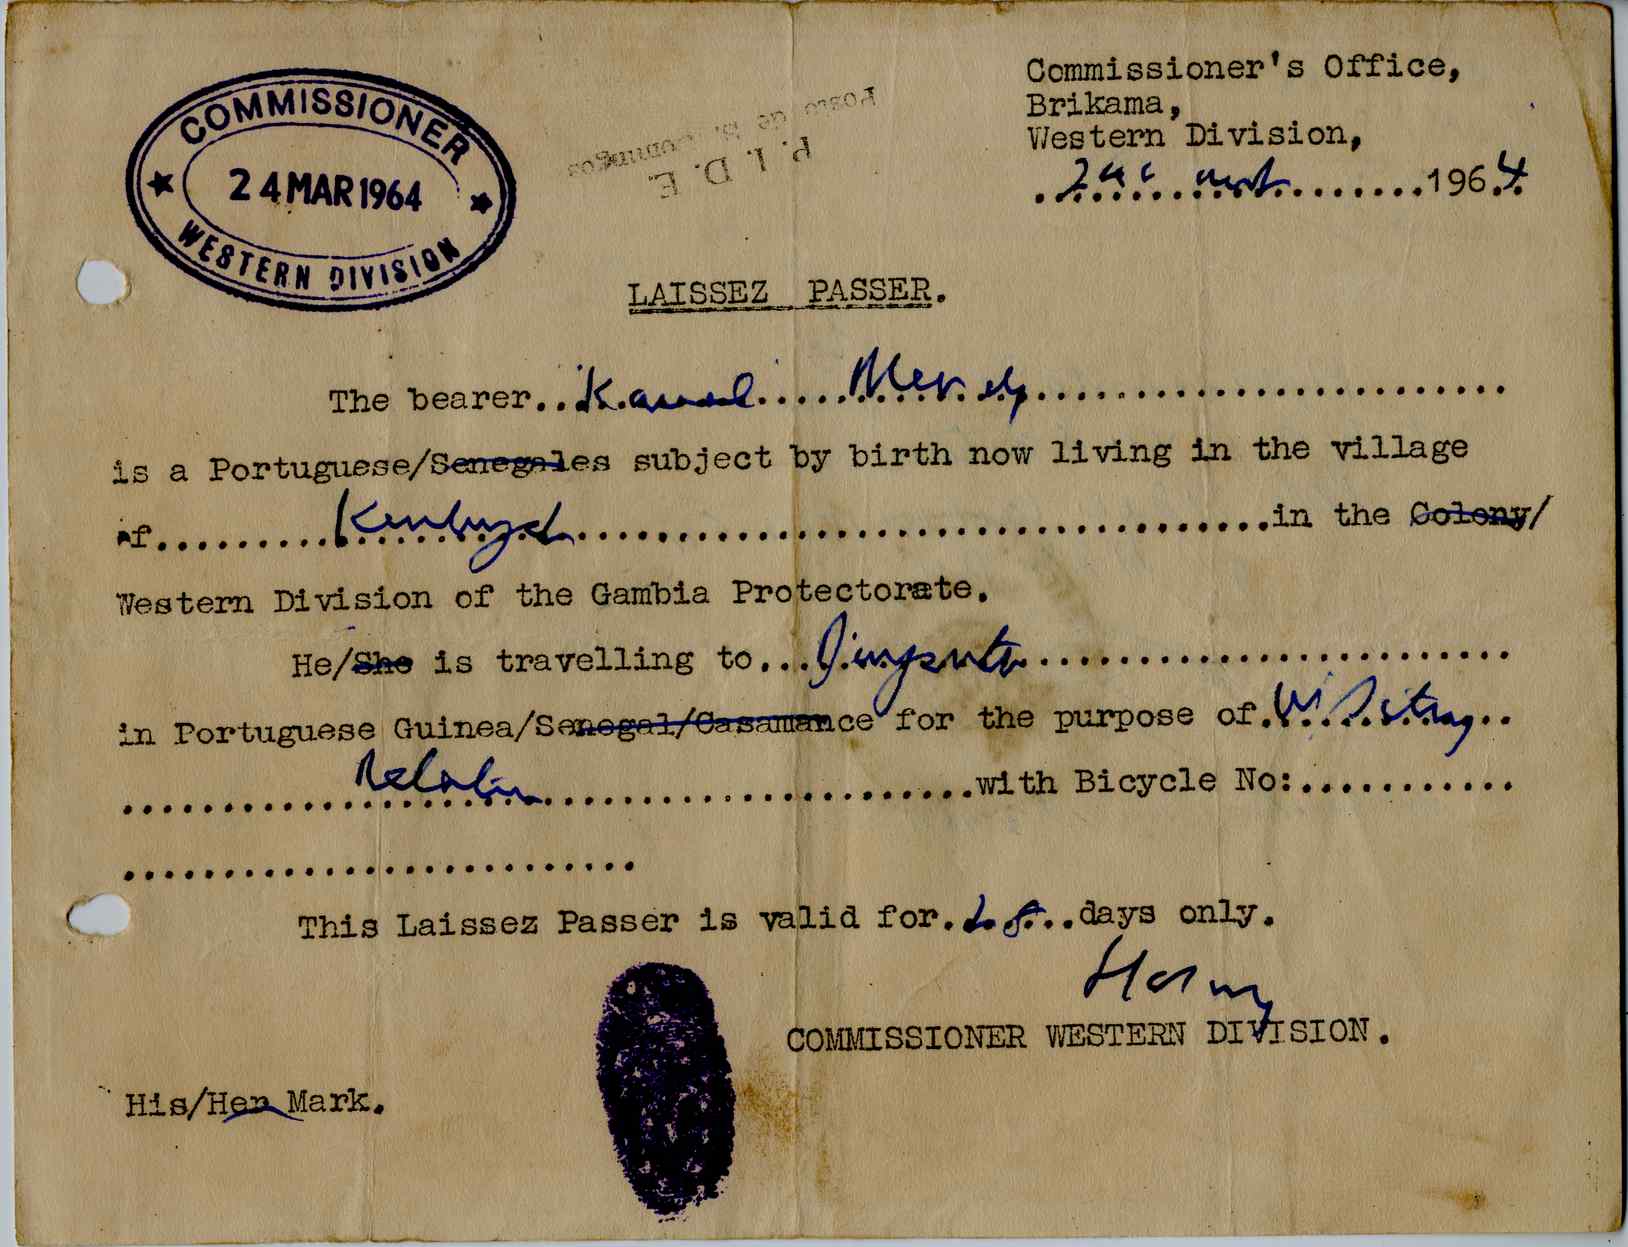 COMMISSIONER
24 MAR 1964
WESTERN DIVISION
P. I. D. E.
Posto de S. Domingos
Commissioner's Office,
Brikama,
Western Division,
1964
LAISSEZ PASSER.
The bearer.. Mendy
is a Portuguese/Senegales subject by birth now living in the village
of in the Colony/
Western Division of the Gambia Protectorate.
He/She is travelling to...
in Portuguese Guinea/Senegal/Casamance for the purpose of. Visiting
Relation with Bicycle No:
This Laissez Passer is valid for. days only.
COMMISSIONER WESTERN DIVISION.
His/Her Mark.